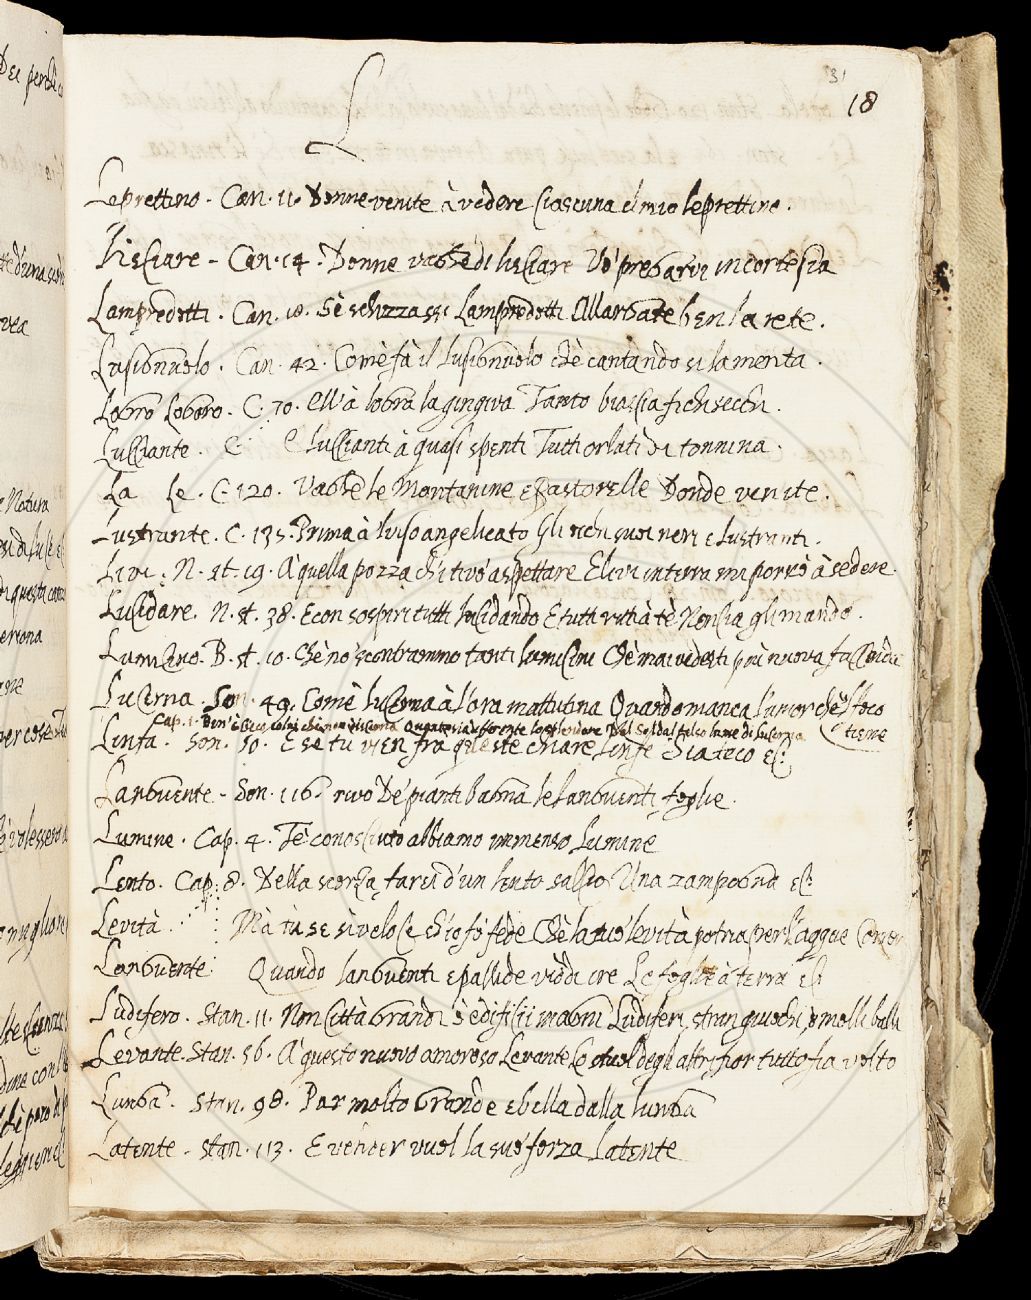 L
31
18
Leprettino. Can. 11. Donne venite à vedere ciascuna el mio leprettino.
Lisciare - Can. 14. Donne vaghe di lisciare Vo' pregarvi in cortesia
Lampredotti. Can. 18. Se schizzassi Lampredotti Allargate ben la rete.
Lusignuolo. Can. 42. Com'è fà il lusignuolo che cantando si lamenta.
C. 70. Ell'à la gingiva Tanto biascia fichi secchi.
Luccicante. C. E luccianti à quasi spenti Tutti orlati di tonnina.
La Le. C. 120. Vaghe le Montanine e Pastorelle Donde venite.
Lustrante. C. 135. Prima à luiso angelicato Gli ochi suoi neri e lustranti.
Livi. N. st. 19. A quella pozza ch'i ti vo' aspettare E livi in terra mi porrò à sedere.
Lucidare. N. st. 38. E con sospiri tutti lucidando E tutti à te Nencia gli mando.
Lumicino. B. st. 10. Che no' scontrammo tanti lumicini Che mai vedesti più nuova faccenda
Lucerna. Son. 49. Come lucerna à l'ora mattutina Quando manca l'umor che'l foco
tiene
Cap. 1. Ben'è cieco colui che non discerna Quanto sia differente lo splendore Del Sol dal falso lume di lucerna
Linfa. Son. 50. E se tu vien fra queste chiare linfe Sia teco ec.
Languente - Son. 116. rivo De' pianti bagna le languenti foglie.
Lumine. Cap. 4. Te conosciuto abbiamo immenso Lumine
Lento. Cap. 8. Della scorza farei d'un lento salcio Una zampogna ec.
Levità. Mà tu se si veloce ch'io fo fede Che la tuo' levità potria per l'acque Correr
Languente. Quando languenti e pallide viddi ire Le foglie à terra ec
Ludifero. Stan. 11. Non Città Grandi ò edificii magni Ludiferi, stran giuochi ò molli balli
Levante. Stan. 56. A questo nuovo amoroso Levante Lo degli altri fior tutto fia volto
Lunga. Stan. 98. Par molto Grande e bella dalla lunga
Latente. Stan. 113. E vencer vuol la suo' forza latente